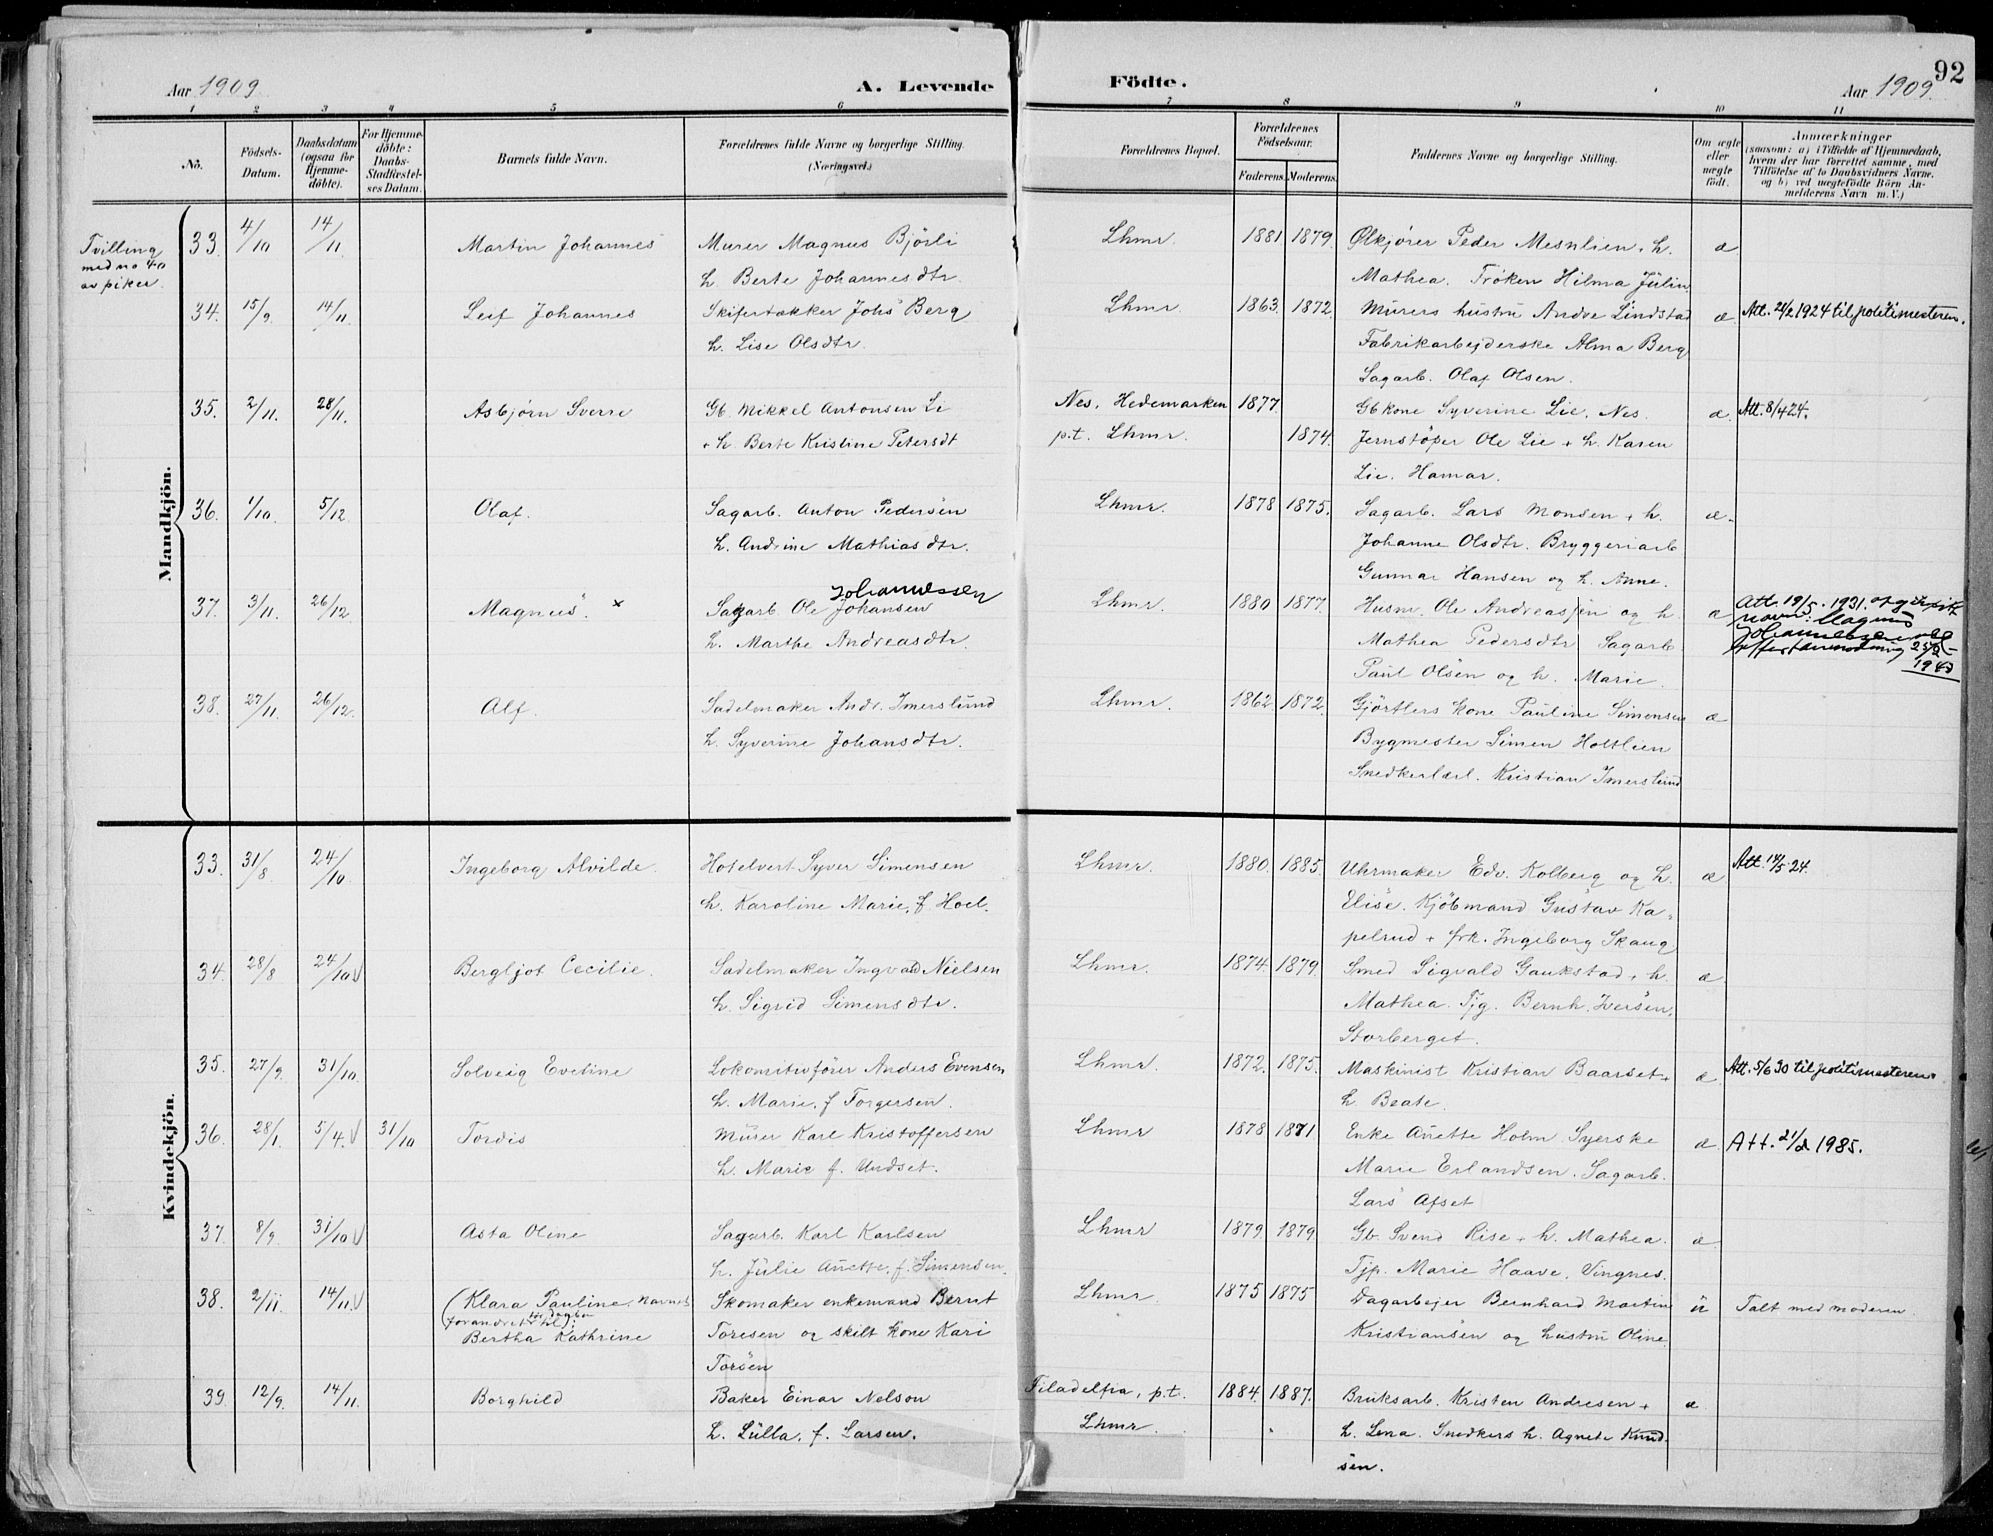 92
Aar 1909.
A. Levende
Födte.
Aar 1909.
1 2 3 4 5 6 7 8 9 10 11
No.
Födsels-Datum.
Daabsdatum (ogsaa for Hjemme-döbte).
For Hjemme-döbte: Daabs-Stadfæstel-ses Datum.
Barnets fulde Navn.
Forældrenes fulde Navne og borgerlige Stilling. (Næringsvei.)
Forældrenes Bopæl.
Forældrenes Födselsaar.
Faderens. Moderens.
Faddernes Navne og borgerlige Stilling.
Om ægte eller uægte födt.
Anmærkninger
(saasom: a) i Tilfælde af Hjemmedaab,
hvem der har forrettet samme, med
Tilföielse af to Daabsvidners Navne.
og b) ved uægtefödte Börn An-
melderens Navn m. V.)
Mandkjön.
Tvilling
med no 40
av piker.
33. 4/10 14/11 Martin Johannes Murer Magnus Björli Lhmr. 1881 1879. Ølkjører Peder Mesnlien, h. æ
h. Berte Johannesdtr. Mathea. Frøken Hilma Julin.
34. 15/9. 14/11. Leif Johannes Skifertækker Johs Berg Lhmr. 1863. 1872. Murers hustru Andre Lindstad æ. Att. 21/2 1924 til politimesteren.
h. Lise Olsdtr. Fabrikarbejderske Alma Berg
Sagarb. Olaf Olsen.
35. 2/11. 28/11. Asbjørn Sverre Gb. Mikkel Antonsen Li Nes, Hedemarken 1877. Gbkone Syverine Lie, Nes. æ. Att. 8/4 24.
+ h. Berte Kristine Petersdt p.t. Lhmr. 1874. Jernstöper Ole Lie + h. Karen
Lie. Hamar.
36. 1/10. 5/12. Olaf. Sagarb. Anton Pedersen Lhmr. 1878 1875. Sagarb. Lars Monsen + h. æ.
h. Andrine Mathiasdtr. Johanne Olsdtr. Bryggeriarb
Gunnar Hansen og h. Anne.
37. 3/11. 26/12 Magnus. x Sagarb. Ole Johansen Johannessen Lhmr. 1880 1877. Husm. Ole Andreassen og h. æ Att. 19/5. 1931.
h. Marthe Andreasdtr. Mathea Pedersdtr Sagarb. navn: Magnus
Paul Olsen og h. Marie. Johannessen
38. 27/11. 26/12. Alf. Sadelmaker Andr. Imerslund Lhmr. 1862. 1872. Gjörtlers kone Pauline Simonsen æ
h. Syverine Johansdtr. Bygmester Simen Holtlien
Snedkerlærl. Kristian Imerslund
Kvindekjön.
33. 31/8 24/10 Ingeborg Alvilde. Hotelvert Syver Simensen Lhmr. 1880. 1885. Uhrmaker Edv. Kolberg og h. æ Att. 14/5 24.
h. Karoline Marie, f. Hoel. Elise. Kjöbmand Gustav Ka-
pelrud + frk. Ingeborg Skaug
34. 28/8 24/10 V Bergljot Cecilie. Sadelmaker Ingvald Nielsen Lhmr. 1874. 1879. Smed Sigvald Gaukstad + h. æ
h. Sigrid Simensdtr. Mathea. Tjg. Bernh. Iversen,
Storberget.
35. 27/9. 31/10. Solveig Eveline Lokomitivfører Anders Evensen Lhmr. 1872. 1875. Maskinist Kristian Baarset + æ. Att. 5/6 30 til politimesteren.
h. Marie, f. Torgersen. h. Beate.
36. 28/1. 5/4. V 31/10 Tordis Murer Karl Kristoffersen Lhmr 1878 1871 Enke Anette Holm. Syerske æ. Att. 21/2 1985.
h. Marie f. Undset. Marie Erlandsen. Sagarb.
Lars Afset
37. 8/9. 31/10 V Asta Oline Sagarb. Karl Karlsen Lhmr 1879. 1879. Gb. Svend Rise + h. Mathea. æ.
h. Julie Anette, f. Simensen. Tjp. Marie Haave, Vingnes.
38. 2/11. 14/11. V (Klara Pauline. Navnet Skomaker enkemand Bernt Lhmr. 1875 1875 Dagarbejer Bernhard Martin u Talt med moderen.
forandret før dagbn til): Toresen og skilt kone Kari Kristiansen og hustru Oline
Bertha Kathrine Torsen
39. 12/9. 14/11. Borghild Baker Einar Nelson Filadelfia, p.t. 1884. 1887. Bruksarb. Kristen Andresen + æ
h. Lulla, f. Larsen. Lhmr. h. Lena. Snedkers h. Agnete Knud-
sen.